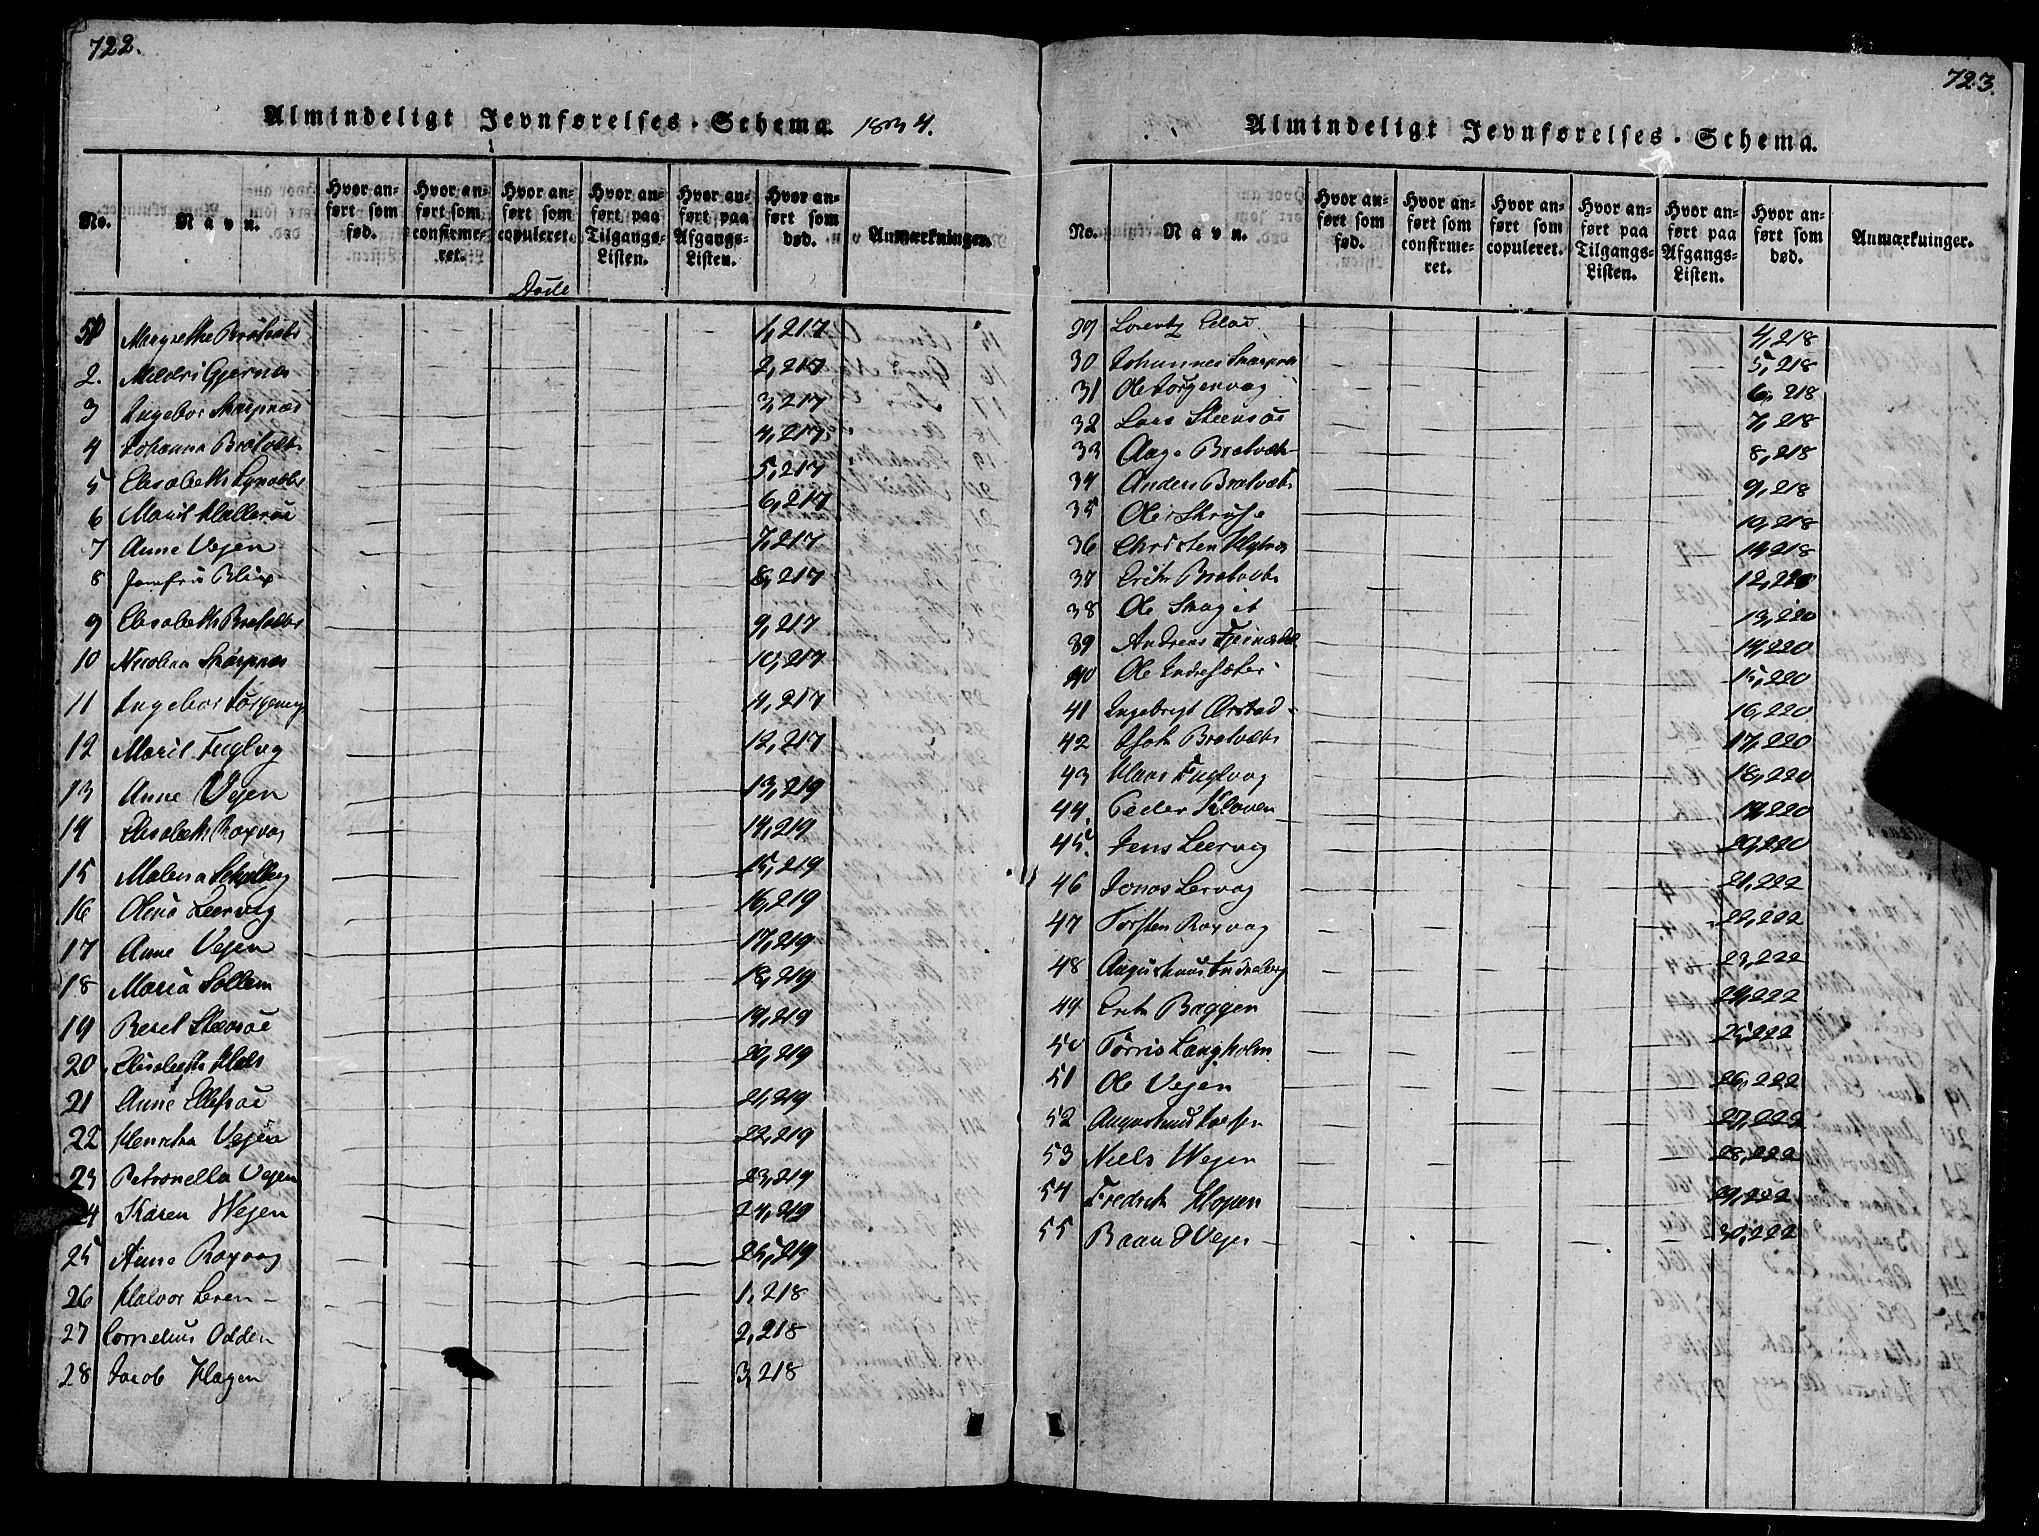 722.
Almindeligt Jevnførelses-Schema. 1834.
No.
Navn.
Hvor anført som fød.
Hvor anført som confirmeret.
Hvor anført som copuleret.
Hvor anført paa Tilgangs-Listen.
Hvor anført paa Afgangs-Listen.
Hvor anført som død.
Anmærkninger.
Døde
Margrethe Bratvær 1,217
2. Meldri Gjernæs 2,217
3 Ingebor Skarpnæs 3,217
4 Johanna Bratvær 4,217
5 Elisabeth 5,217
6 Marit 6,217
7 Anne Vejen 7,217
8 Jomfru Blix 8,217
9 Elisabeth Bratvær 9,217
10 Nicolina Skarpnæs 10,217
11 Ingebor Jørgenvag 217
12 Marit Fuglvog 12,217
13 Anne Vejen 13,219
14 Elisabeth Roxvog 14,219
15 Malena 15,219
16 Olene Leervig 16,219
17 Anne Vejen 17,219
18 Maria Sollem 18,219
19 Beret Steensøe 19,219
20 Elisabeth Hals 20,219
21 Anne Ellefsøe 21,219
22 Henricha Vejen 22,219
23 Petronella Vejen 23,219
24 Karen Wejen 24,219
25 Anne Roxvog 25,219
26 Halvor Leren 1,218
27 Cornelius Odden 2,218
28 Jacob Hagen 3,218
723.
Almindeligt Jevnførelses-Schema.
No.
Navn.
Hvor anført som fød.
Hvor anført som confirmeret.
Hvor anført som copuleret.
Hvor anført paa Tilgangs-Listen.
Hvor anført paa Afgangs-Listen.
Hvor anført som død.
Anmærkninger.
29 Lorentz 4,218
30 Johannes Skarpnæs 5,218
31 Ole Jørgenvag 6,218
32 Lars Steensøe 7,218
33 Aage Bratvær 8,218
34 Anders Bratvær 9,218
35 Ole 10,218
36 Christen 11,218
37 Erik Bratvær 12,220
38 Ole 13,220
39 Andreas 14,220
40 Ole Indresæter 15,220
41 Ingebrigt Ørstad 16,220
42 Bratvær 17,220
43 Hans Fuglvog 18,220
44. Peder Kloven 19,220
45. Jens Leervig 20,220
46 Jonas Lervag 21,222
47 Torsten Roxvog 22,222
48 Augustinus 23,222
49 Erik Baggen 24,222
50 Tørris Langholm 25,222
51 Ole Vejen 26,222
52 Augustinus 27,222
53 Niels Wejen 28,222
54 Fredrik Hopen 29,222
55 30,222